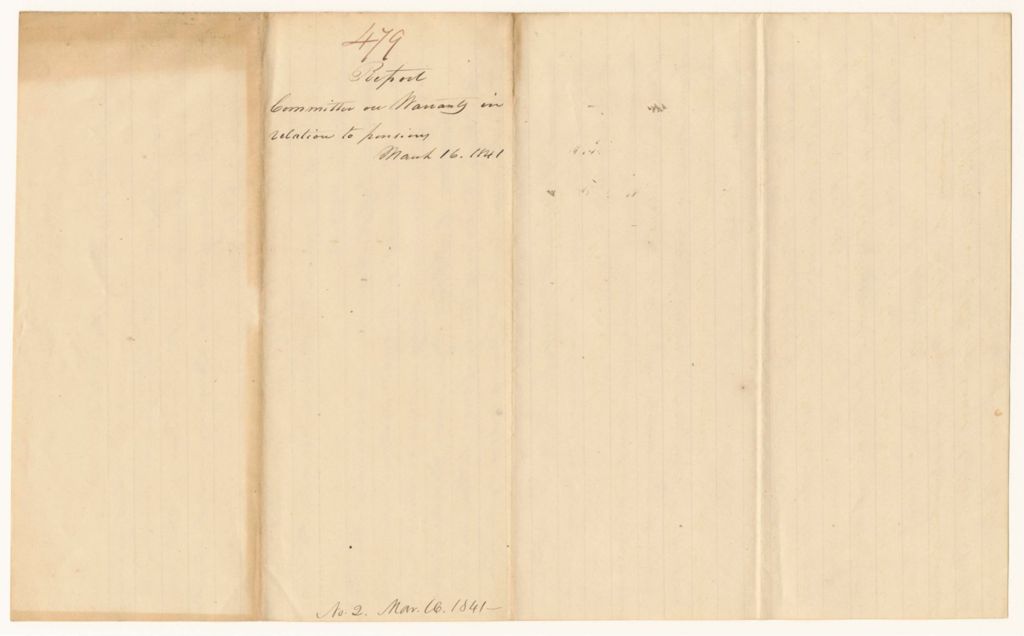 479
Report
Committee on Warrants in
relation to pensions
March 16. 1841
No. 2. Mar. 16. 1841—